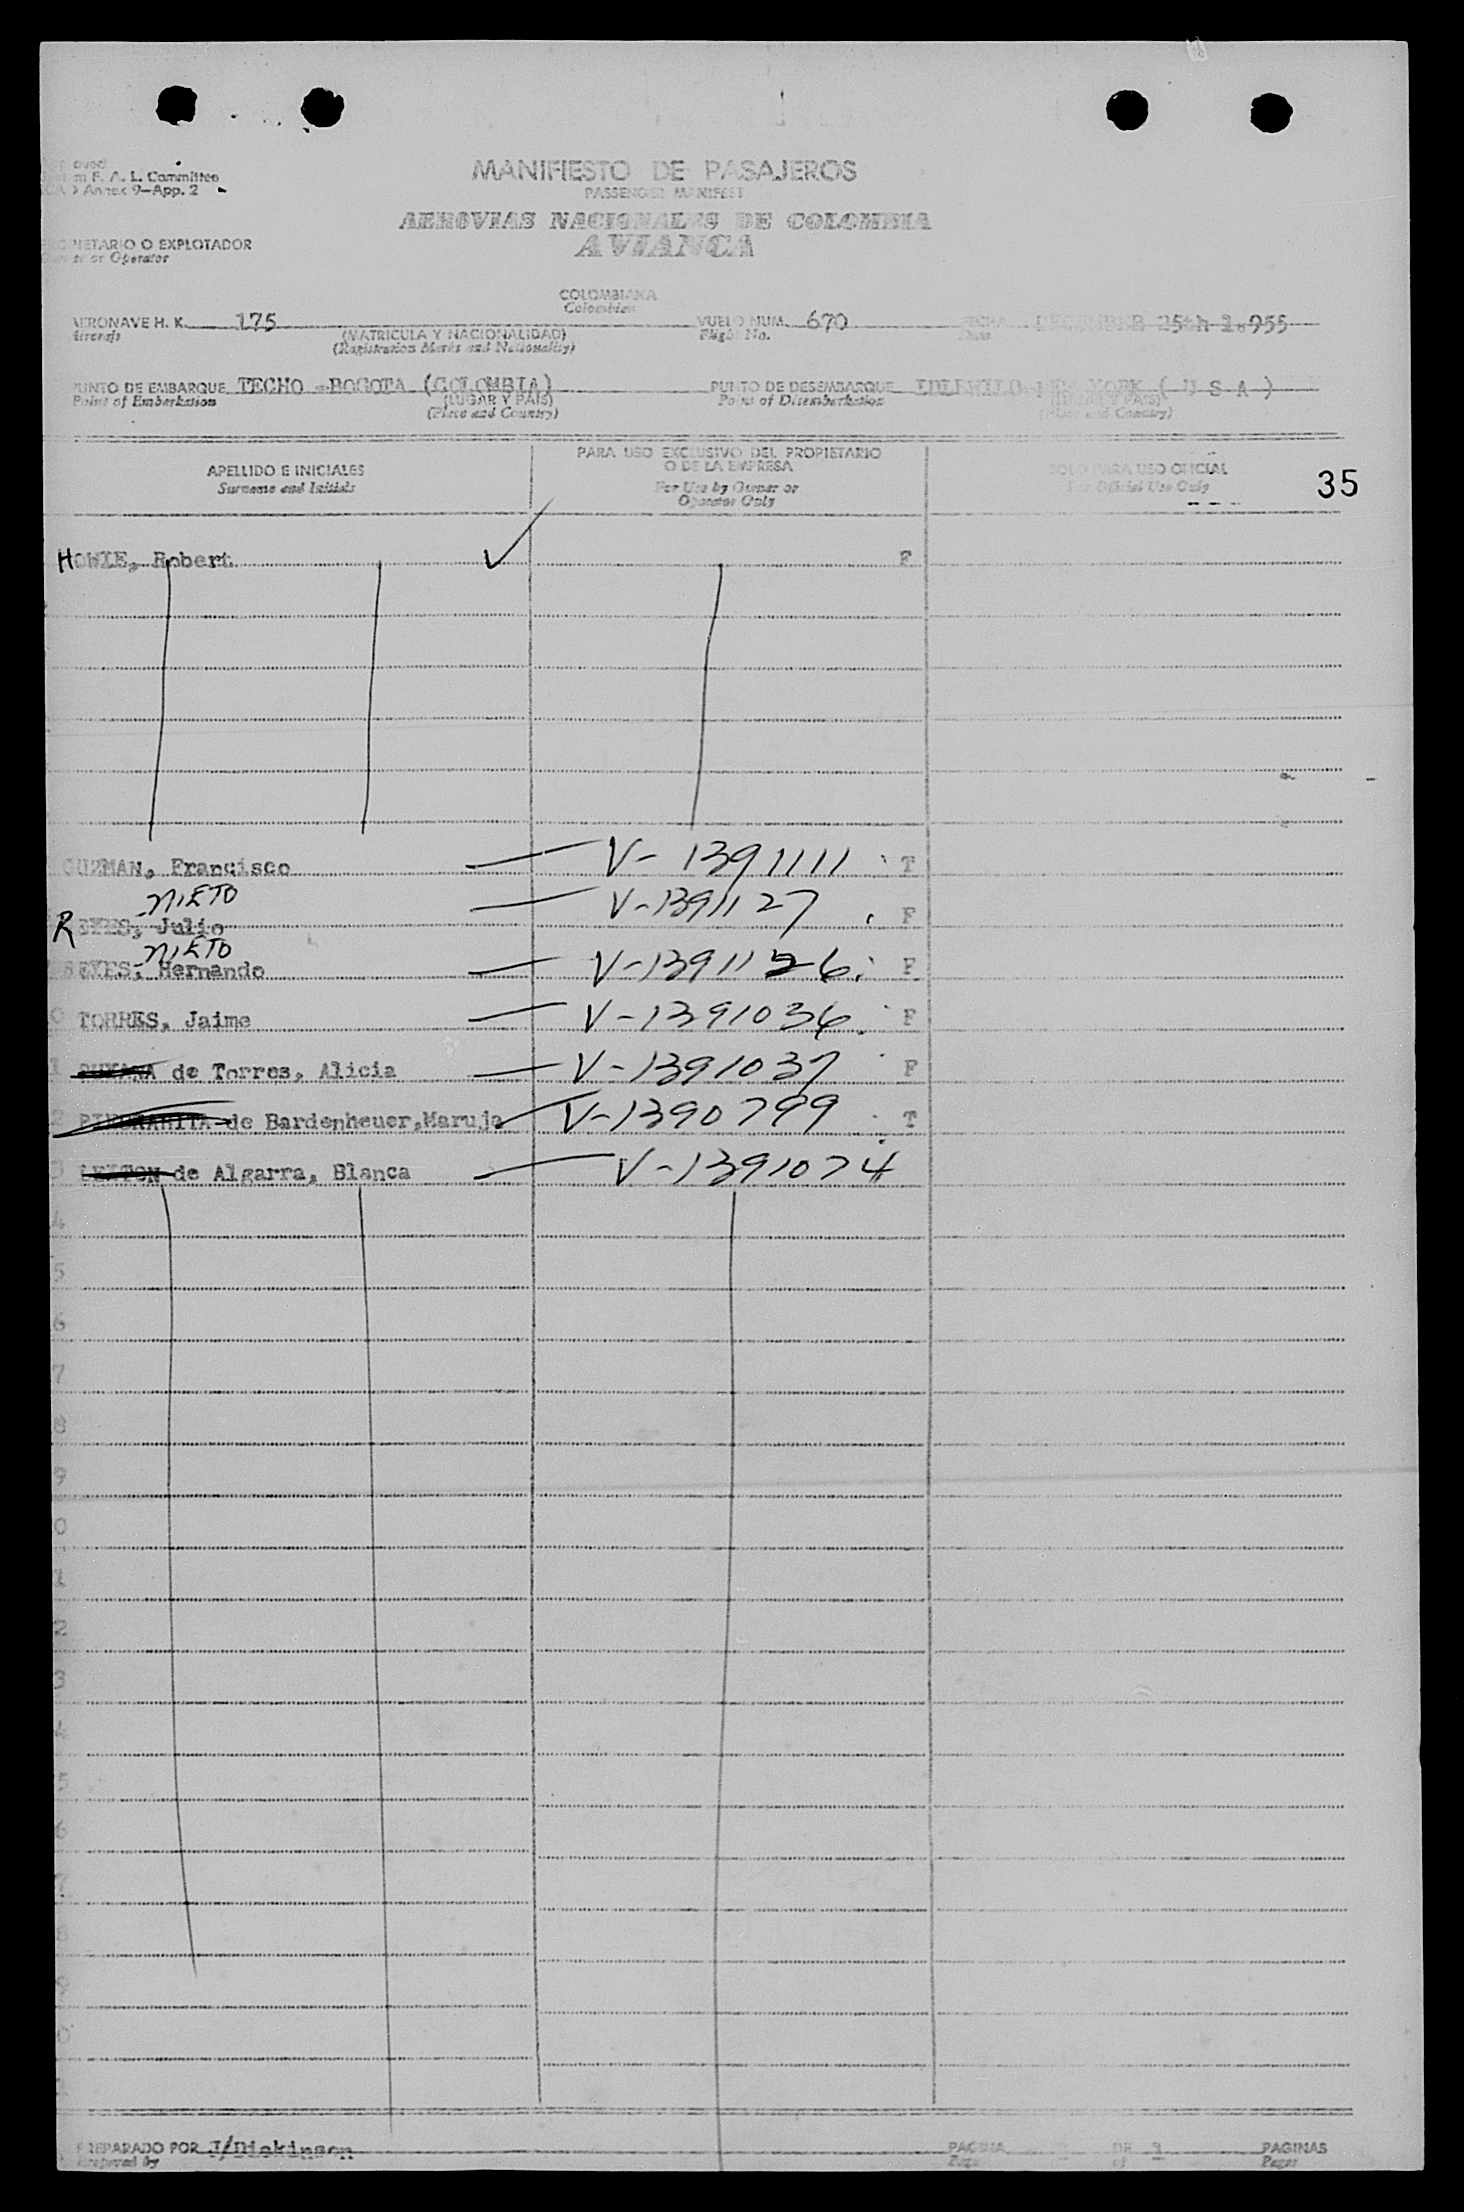 MANIFIESTO DE PASAJEROS
PASSENGER MANIFEST
m F. A. L. Committee
Annex 9-App. 2
AEROVIAS NACIONALES DE COLOMBIA
AVIANCA
NETARIO O EXPLOTADOR
or Operator
COLOMBIANA
Colombian
AERONAVE H. K. 175 VUELO NUM. 670 DECEMBER 25th 1.955
Aircraft (MATRICULA Y NACIONALIDAD) Flight No.
(Registration Marks and Nationality)
PUNTO DE EMBARQUE TECHO - BOGOTA (COLOMBIA) PUNTO DE DESEMBARQUE IDLEWILD NEW YORK ( U S A )
Point of Embarkation (LUGAR Y PAIS) Point of Disembarkation
(Place and Country) (Place and Country)
APELLIDO E INICIALES PARA USO EXCLUSIVO DEL PROPIETARIO O DE LA EMPRESA SOLO PARA USO OFICIAL
Surname and Initials For Use by Owner or Operator Only For Official Use Only
35
HOWIE, Robert F
GUZMAN, Francisco V-1391111 T
NIETO
REYES, Julio V-1391127 F
NIETO
REYES, Hernando V-1391126 F
0 TORRES, Jaime V-1391036 F
1 de Torres, Alicia V-1391037 F
2 de Bardenheuer, Maruja V-1390799 T
3 de Algarra, Blanca V-1391074
4
5
6
7
8
9
0
1
2
3
4
5
6
7
8
9
0
PREPARADO POR J/Dickinson PAGINA DE 3 PAGINAS
Prepared by Page of Pages